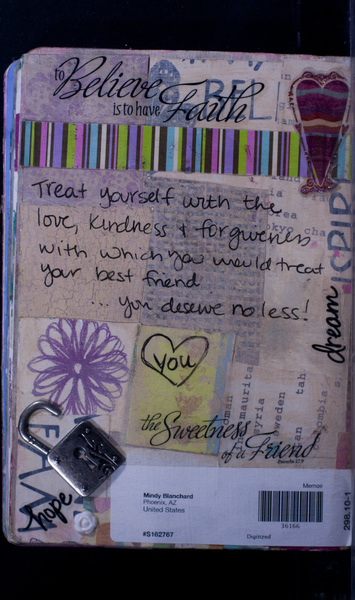 to Believe
is to have Faith
BEL
Treat yourself with the
love, kindness & forgiveness
with which you would treat
your best friend
... you deserve no less!
dream
you
the Sweetness
of a Friend
mauritan
syria
sweden
hope
Memoir
Mindy Blanchard
Phoenix, AZ
United States
#S162767
16166
Digitized
298.10-1